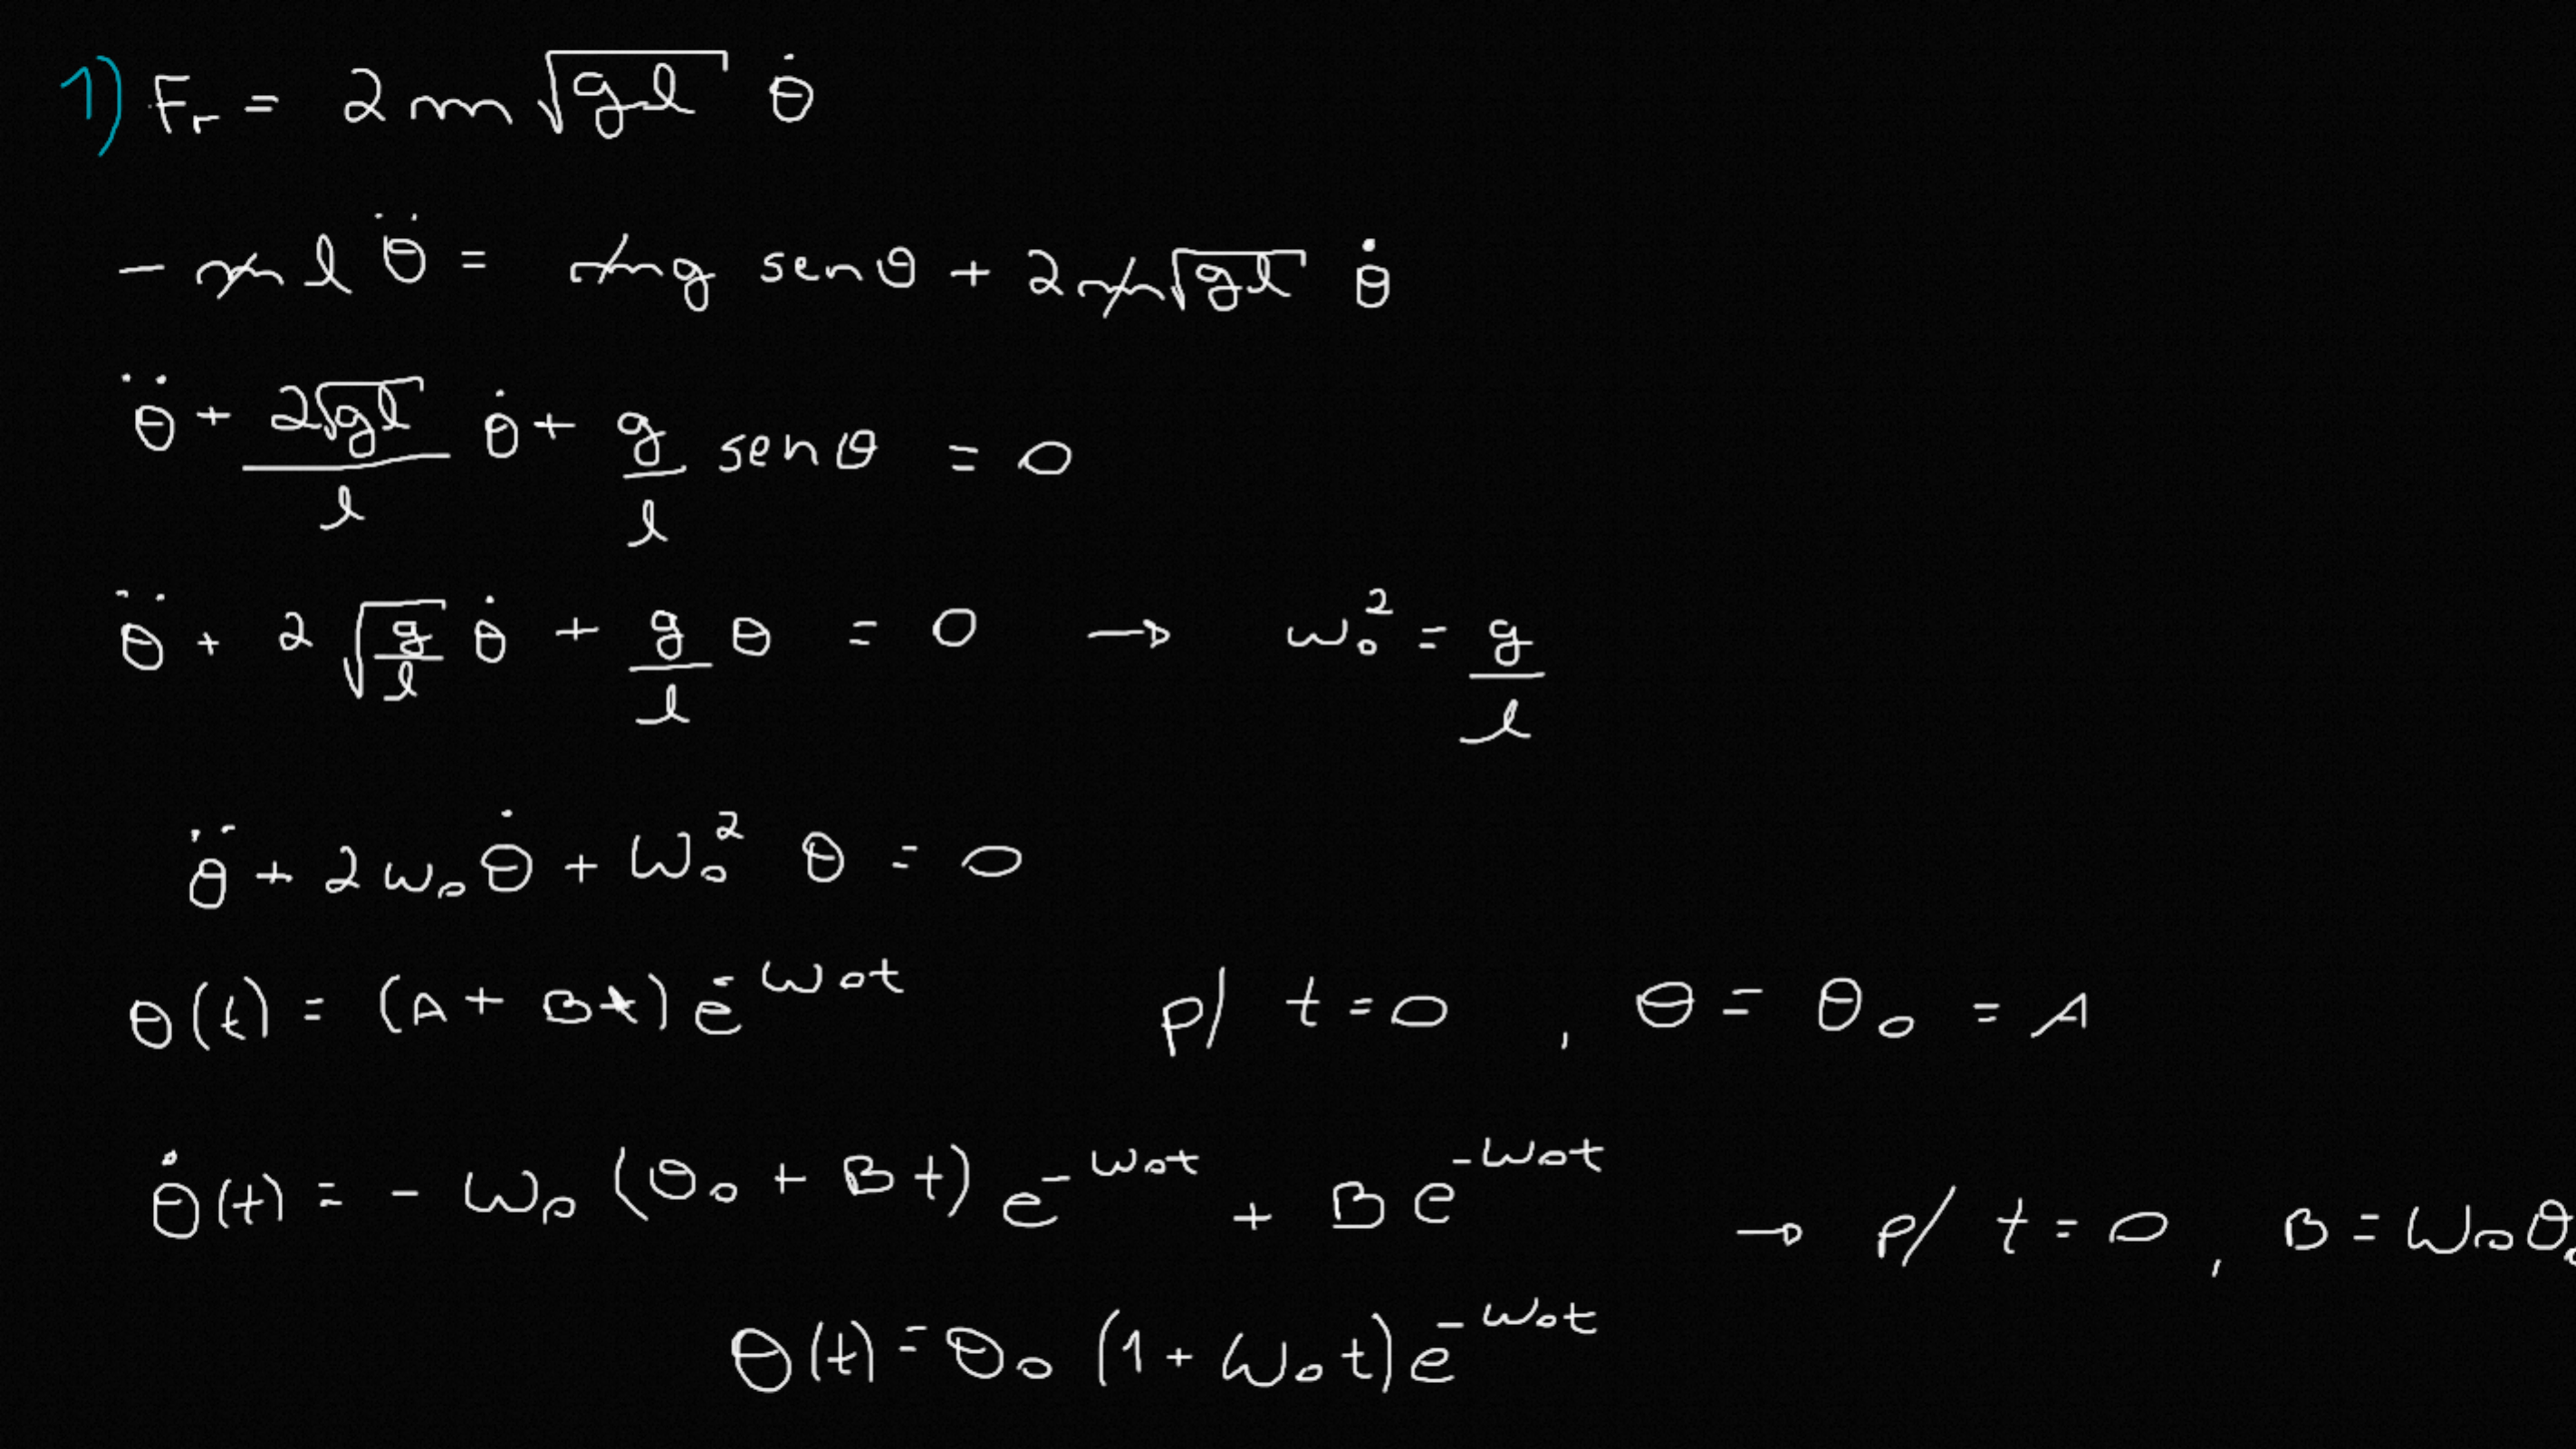 1) Fᵣ = 2m√(gl) θ̇
- m l θ̈ = mg senθ + 2m√(gl) θ̇
θ̈ + 2√(gl)/l θ̇ + g/l senθ = 0
θ̈ + 2√(g/l) θ̇ + g/l θ = 0 → ω₀² = g/l
θ̈ + 2ω₀θ̇ + ω₀² θ = 0
θ(t) = (A + Bt) e^(-ω₀t) p/ t = 0 , θ = θ₀ = A
θ̇(t) = - ω₀ (θ₀ + Bt) e^(-ω₀t) + B e^(-ω₀t) → p/ t = 0 , B = ω₀θ₀
θ(t) = θ₀ (1 + ω₀t) e^(-ω₀t)